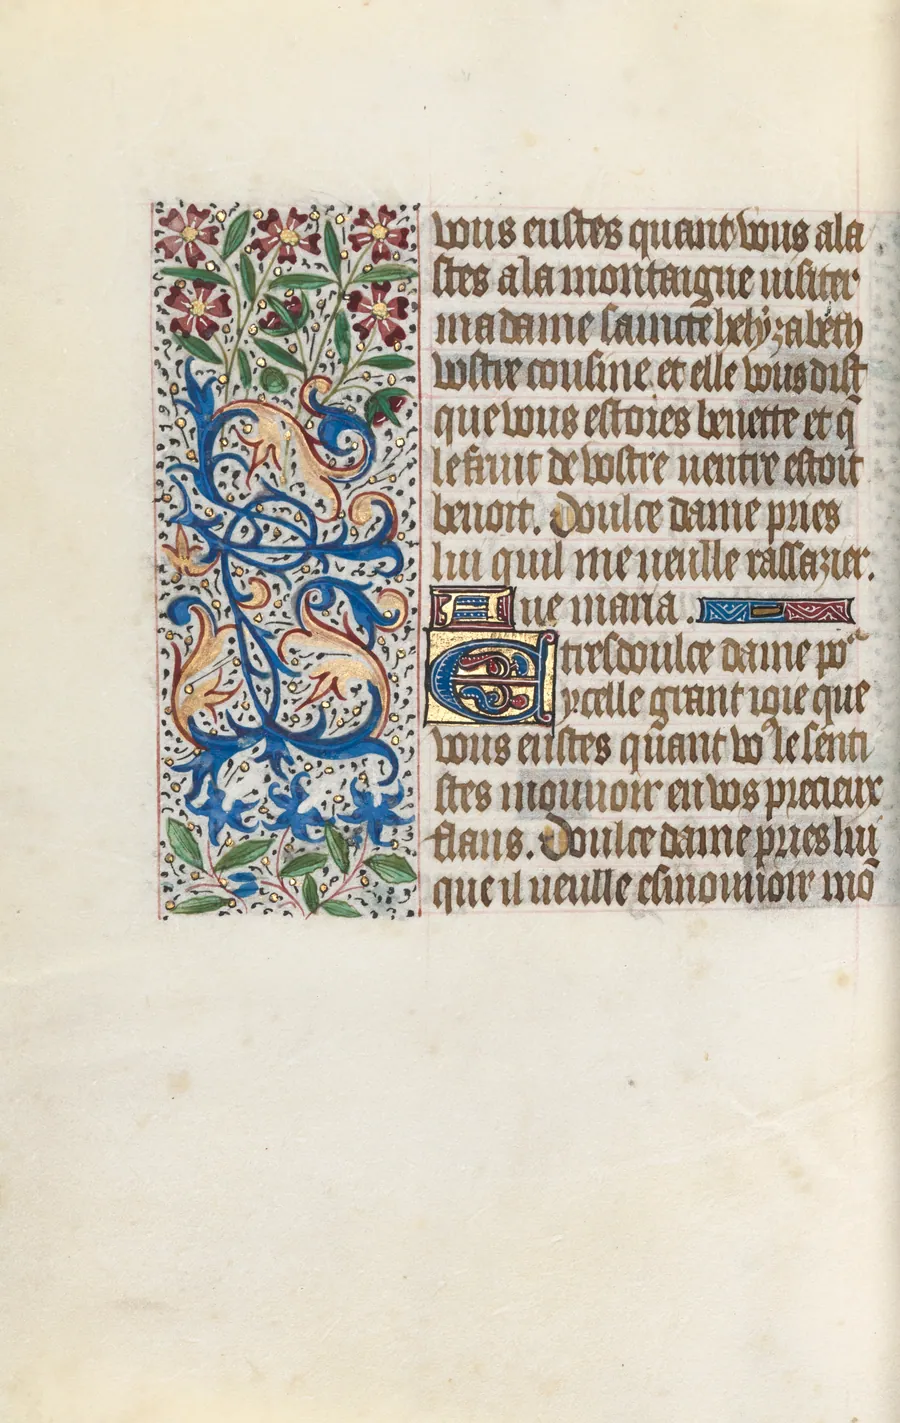 vous eustes quant vous ala
stes a la montaigne uisiter
ma dame saincte helyzabeth
vostre cousine et elle vous dist
que vous estoies benette et q̄
le fruit de vostre uentre estoit
benoit. Doulce dame pries
lui quil me ueulle rassazier.
Aue maria.
E tresdoulce dame po᷑
ycelle grant ioie que
vous eustes quant vo⁹ le senti
stes mouuoir en vos precieux
flans. Doulce dame pries lui
que il ueulle esmouuoir mō